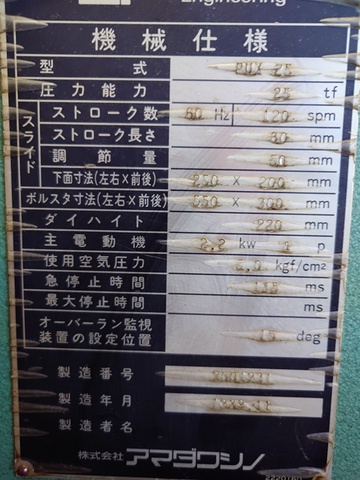 Engineering
機械仕様
型式 PUX 25
圧力能力 25 tf
スライド
ストローク数 60 Hz 120 spm
ストローク長さ 30 mm
調節量 50 mm
下面寸法(左右×前後) 250 × 200 mm
ボルスタ寸法(左右×前後) 650 × 300 mm
ダイハイト 220 mm
主電動機 2.2 kw p
使用空気圧力 kgf/cm²
急停止時間 ms
最大停止時間 ms
オーバーラン監視
装置の設定位置 deg
製造番号
製造年月
製造者名
株式会社 アマダワシノ